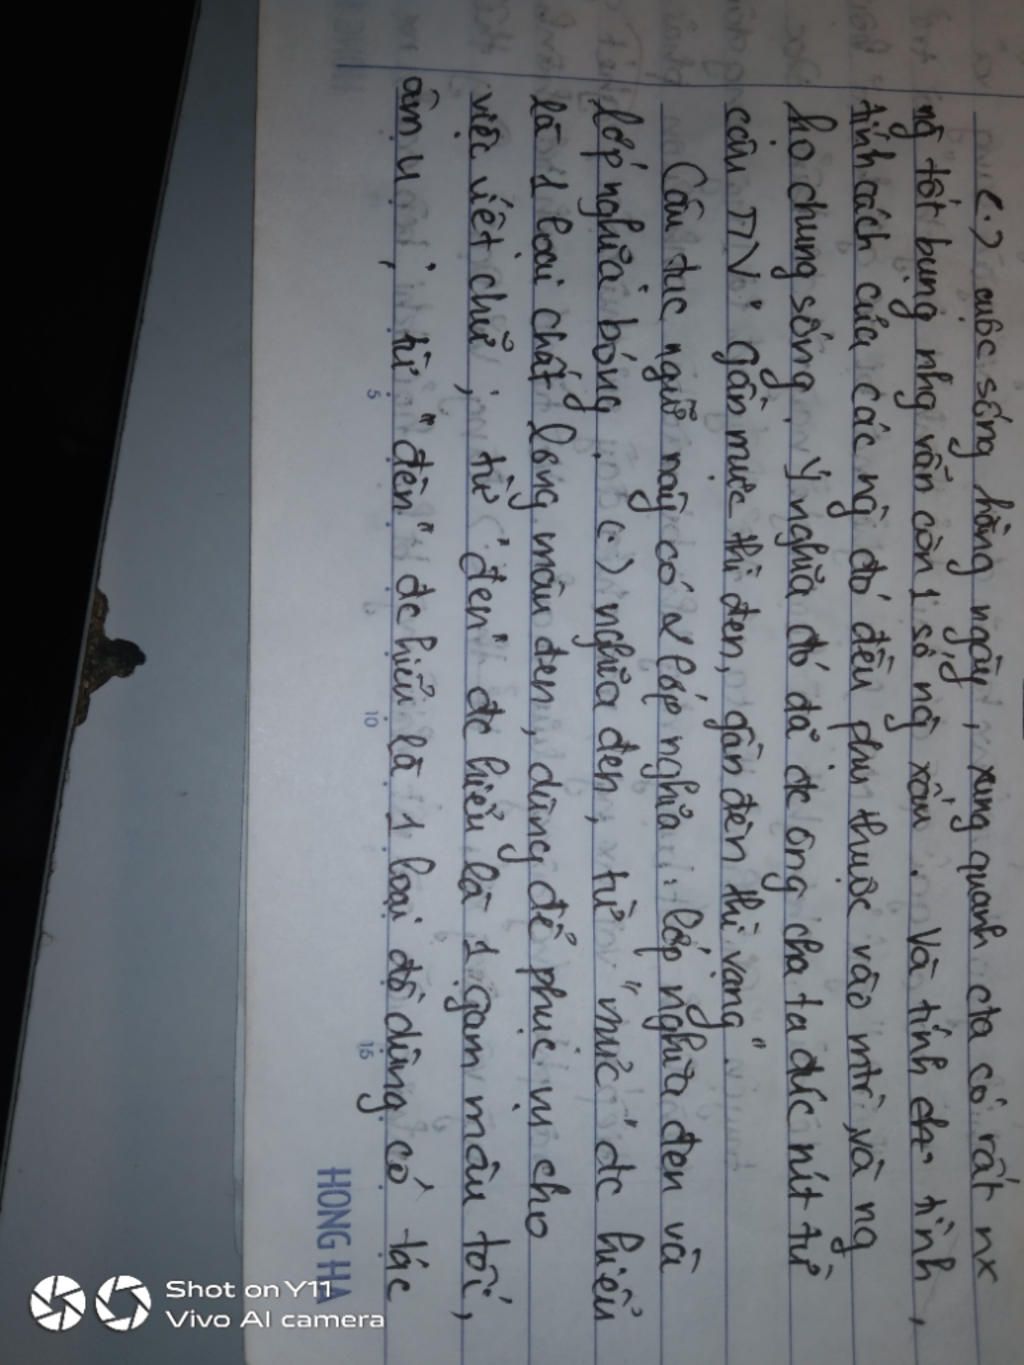 (.) cuộc sống hằng ngày, xung quanh cta có rất nx
ng tốt bụng nhg vẫn còn 1 số ng xấu. Và tính ch. tình,
tính cách của các ng đó đều phụ thuộc vào mtr và ng
họ chung sống. Ý nghĩa đó đã đc ông cha ta đúc rút từ
câu TN " Gần mực thì đen, gần đèn thì vang".
Câu tục ngữ này có 2 lớp nghĩa: lớp nghĩa đen và
lớp nghĩa bóng. (.) nghĩa đen, từ "mực" đc hiểu
là 1 loại chất lỏng màu đen, dùng để phục vụ cho
việc viết chữ, từ "đen" đc hiểu là 1 gam màu tối,
âm u, từ "đèn" đc hiểu là 1 loại đồ dùng có tác
5
10
15
HONG HA
Shot on Y11
Vivo AI camera